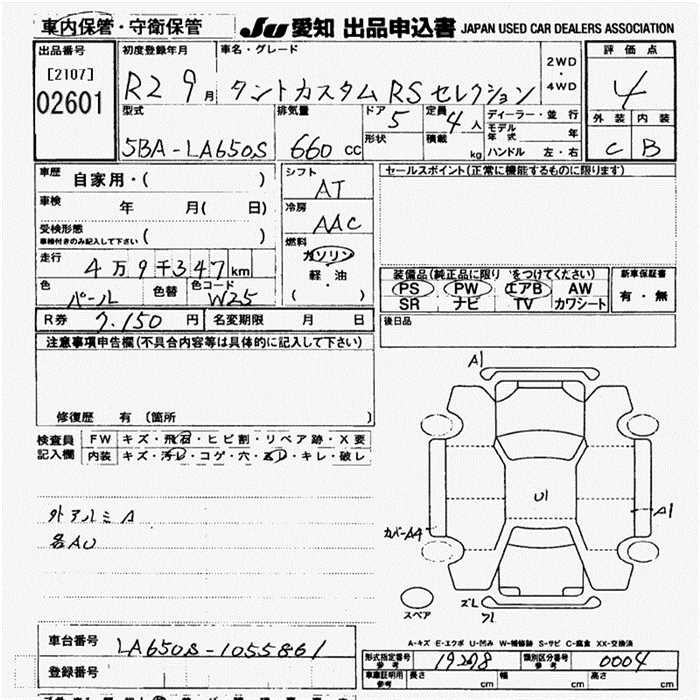 車内保管・守衛保管 JU 愛知 出品申込書 JAPAN USED CAR DEALERS ASSOCIATION
出品番号 初度登録年月 車名・グレード 2WD・4WD 評価点
[2107] R2 9月 タントカスタム RS セレクション 4
02601
型式 排気量 ドア 5 定員 4人 ディーラー・並行 外装 内装
形状 積載 kg モデル年式 年
5BA-LA650S 660 cc ハンドル 左・右 C B
車歴 自家用・( ) シフト AT セールスポイント(正常に機能するものに限ります)
車検 年 月( 日) 冷房 AAC
受検形態 ( )
車検付きのみ記入して下さい
燃料 ガソリン
走行 4万9千347km 軽・油 装備品(純正品に限り をつけてください) 新車保証書
色 パール 色替 色コード W25 ( ) PS PW エアB AW 有・無
SR ナビ TV カワシート
R券 7.150円 名変期限 月 日 後日品
注意事項申告欄(不具合内容等は具体的に記入して下さい)
A1
修復歴 有 (箇所 )
検査員記入欄 FW キズ・飛石・ヒビ割・リペア跡・X要
内装 キズ・汚レ・コゲ・穴・スレ・キレ・破レ
U1
外アルミA A1
各AU カバーA4
スペア ズレ
A-キズ E-エクボ U-凹み W-補修跡 S-サビ C-腐食 XX-交換済
車台番号 LA650S-1055861 形式指定番号 参考 19208 類別区分番号 参考 0004
登録番号 車庫証明用 参考 長さ cm 幅 cm 高さ cm